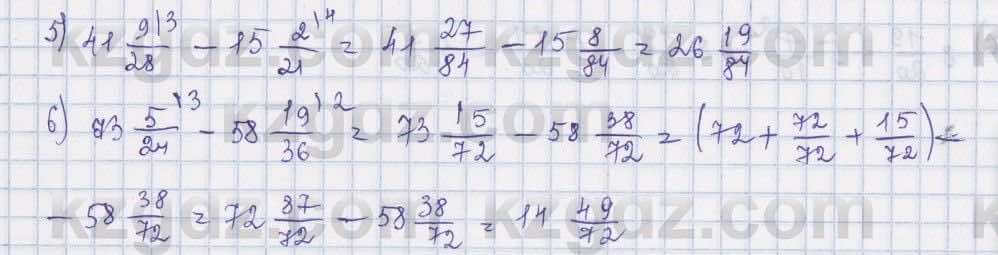 5) 41 9/28 \3 − 15 2/21 \4 = 41 27/84 − 15 8/84 = 26 19/84
6) 73 5/24 \3 − 58 19/36 \2 = 73 15/72 − 58 38/72 = (72 + 72/72 + 15/72) −
− 58 38/72 = 72 87/72 − 58 38/72 = 14 49/72
kzgdz.com